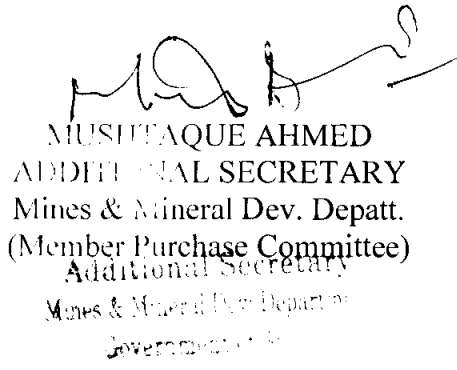 MUSHTAQUE AHMED
ADDITIONAL SECRETARY
Mines & Mineral Dev. Depatt.
(Member Purchase Committee)
Additional Secretary
Mines & Mineral Dev. Department
Government of